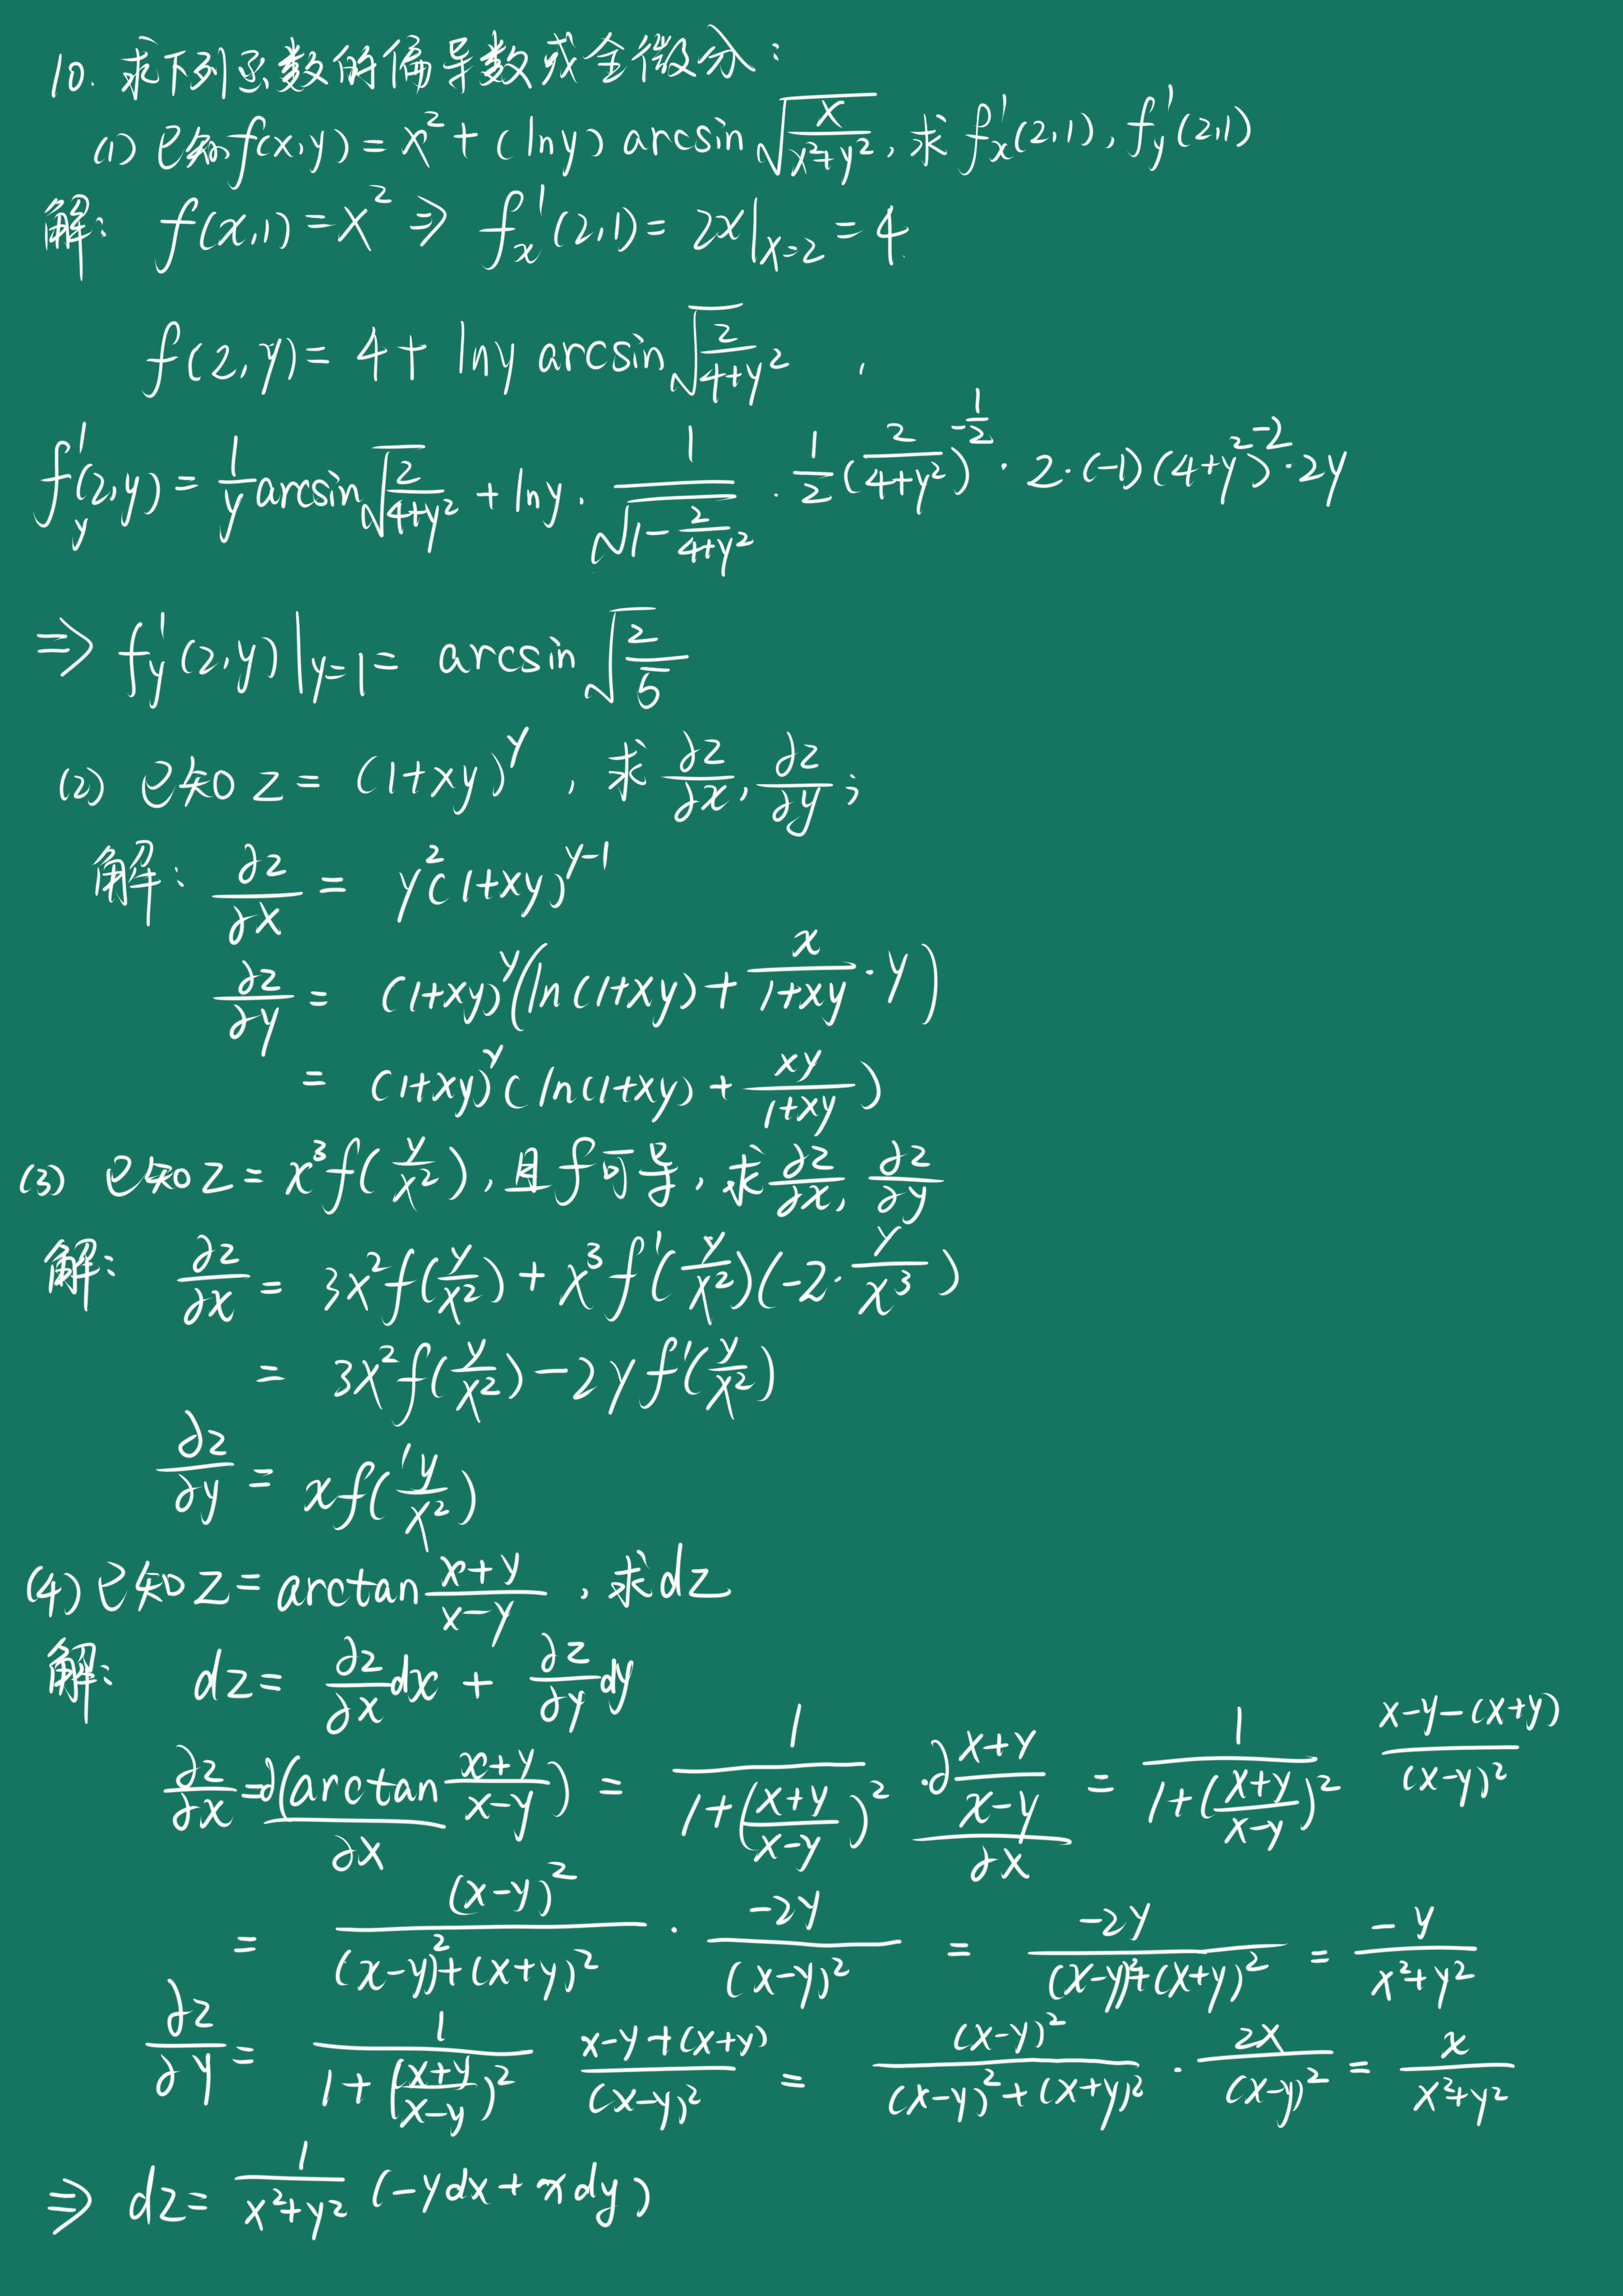 10. 求下列函数的偏导数或全微分:
(1) 已知f(x,y) = x² + (lny) arcsin√(x/(x²+y²)), 求 fx'(2,1), fy'(2,1)
解: f(x,1) = x² ⇒ fx'(2,1) = 2x|x=2 = 4
f(2,y) = 4 + lny arcsin√(2/(4+y²))
fy'(2,y) = 1/y arcsin√(2/(4+y²)) + lny · 1/√(1-2/(4+y²)) · 1/2 (2/(4+y²))^(-1/2) · 2·(-1)(4+y²)^(-2)·2y
⇒ fy'(2,y)|y=1 = arcsin√(2/5)
(2) 已知 z = (1+xy)^y , 求 ∂z/∂x, ∂z/∂y;
解: ∂z/∂x = y²(1+xy)^(y-1)
∂z/∂y = (1+xy)^y(ln(1+xy) + x/(1+xy) · y)
= (1+xy)^y(ln(1+xy) + xy/(1+xy))
(3) 已知 z = x³f(y/x²), 且f可导, 求∂z/∂x, ∂z/∂y
解: ∂z/∂x = 3x²f(y/x²) + x³f'(y/x²)(-2·y/x³)
= 3x²f(y/x²) - 2yf'(y/x²)
∂z/∂y = xf'(y/x²)
(4) 已知 z = arctan (x+y)/(x-y) , 求dz
解: dz = ∂z/∂x dx + ∂z/∂y dy
∂z/∂x = ∂(arctan (x+y)/(x-y))/∂x = 1/(1+((x+y)/(x-y))²) · ∂((x+y)/(x-y))/∂x = 1/(1+((x+y)/(x-y))²) (x-y-(x+y))/(x-y)²
= (x-y)²/((x-y)²+(x+y)²) · -2y/(x-y)² = -2y/((x-y)²+(x+y)²) = -y/(x²+y²)
∂z/∂y = 1/(1+((x+y)/(x-y))²) (x-y+(x+y))/(x-y)² = (x-y)²/((x-y)²+(x+y)²) · 2x/(x-y)² = x/(x²+y²)
⇒ dz = 1/(x²+y²) (-ydx + xdy)